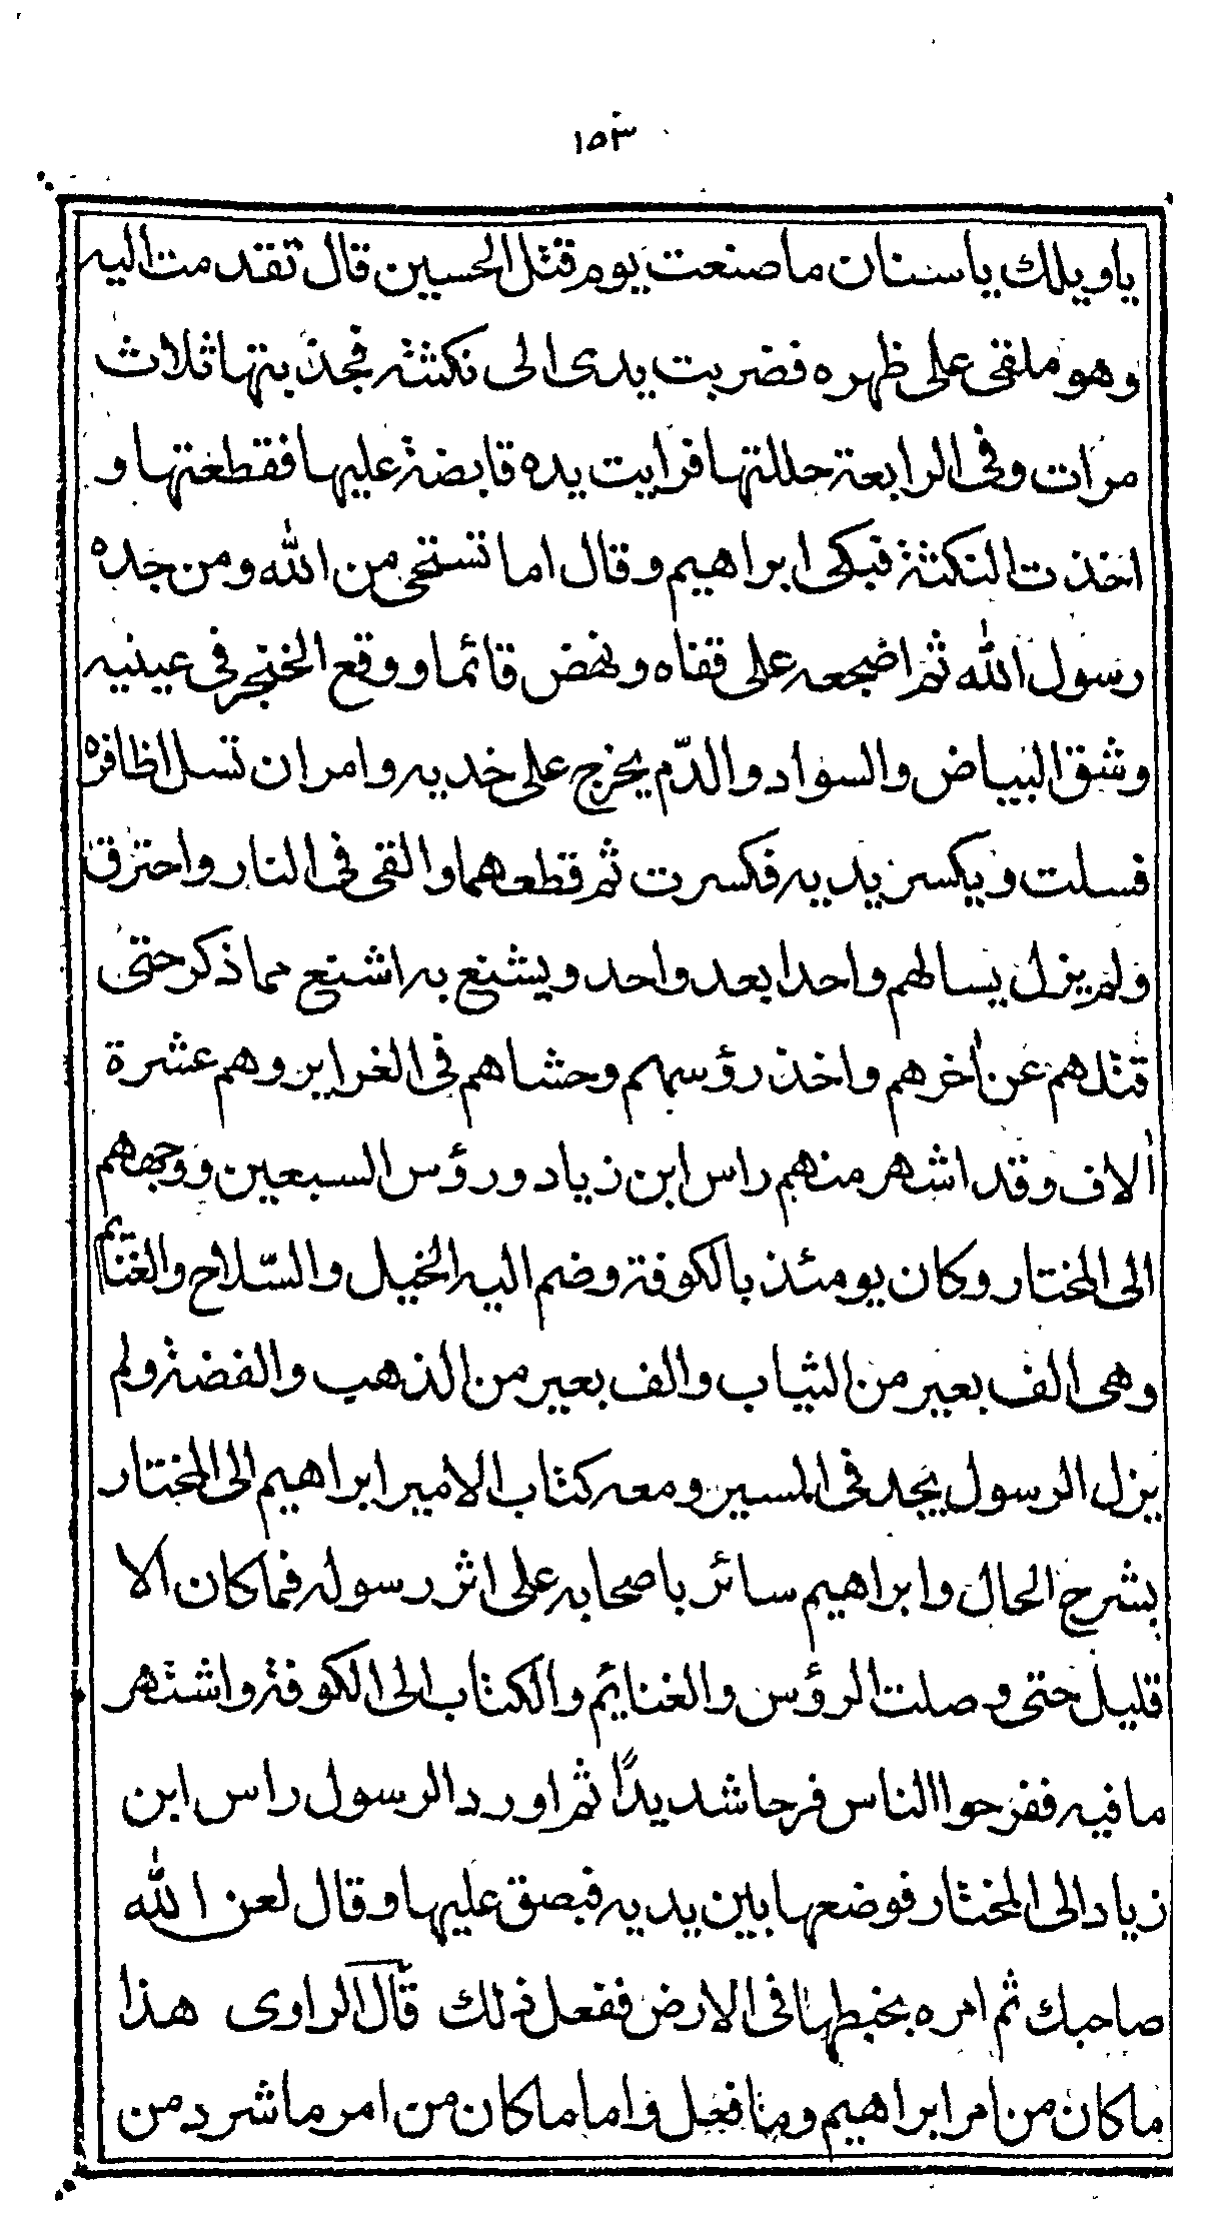 ١٥٣
ياويلك ياسنان ماصنعت يوم قتل الحسين قال تقدمت اليه
وهو ملقى على ظهره فضربت يدى الى نكثته فجذبتها ثلاث
مرات وفى الرابعة حللتها فرايت يده قابضة عليها فقطعتها و
اخذت النكثة فبكى ابراهيم وقال اما تستحى من الله ومن جده
رسول الله ثم اضجعه على قفاه ونهض قائما ووقع الخنجر فى عينيه
وشق البياض والسواد والدّم يخرج على خديه وامر ان تسل اظافره
فسلت ويكسر يديه فكسرت ثم قطعهما والقى فى النار واحترق
ولم يزل يسالهم واحدا بعد واحد ويشنع به اشنع مما ذكر حتى
قتلهم عن اخرهم واخذ رؤسهم وحشاهم فى الغراير وهم عشرة
الاف وقد اشهر منهم راس ابن زياد ورؤس السبعين ووجههم
الى المختار وكان يومئذ بالكوفة وضم اليه الخيل والسّلاح والغنايم
وهى الف بعير من الثياب والف بعير من الذهب والفضة ولم
يزل الرسول يجد فى المسير ومعه كتاب الامير ابراهيم الى المختار
بشرح الحال وابراهيم سائر باصحابه على اثر رسوله فما كان الا
قليل حتى وصلت الرؤس والغنايم والكتاب الى الكوفة واشتهر
ما فيه ففرحوا الناس فرحا شديدًا ثم اورد الرسول راس ابن
زياد الى المختار فوضعها بين يديه فبصق عليها وقال لعن الله
صاحبك ثم امره بخبطها فى الارض ففعل ذلك قال الراوى هذا
ما كان من امر ابراهيم وما فعل واما ما كان من امر ما شرد من